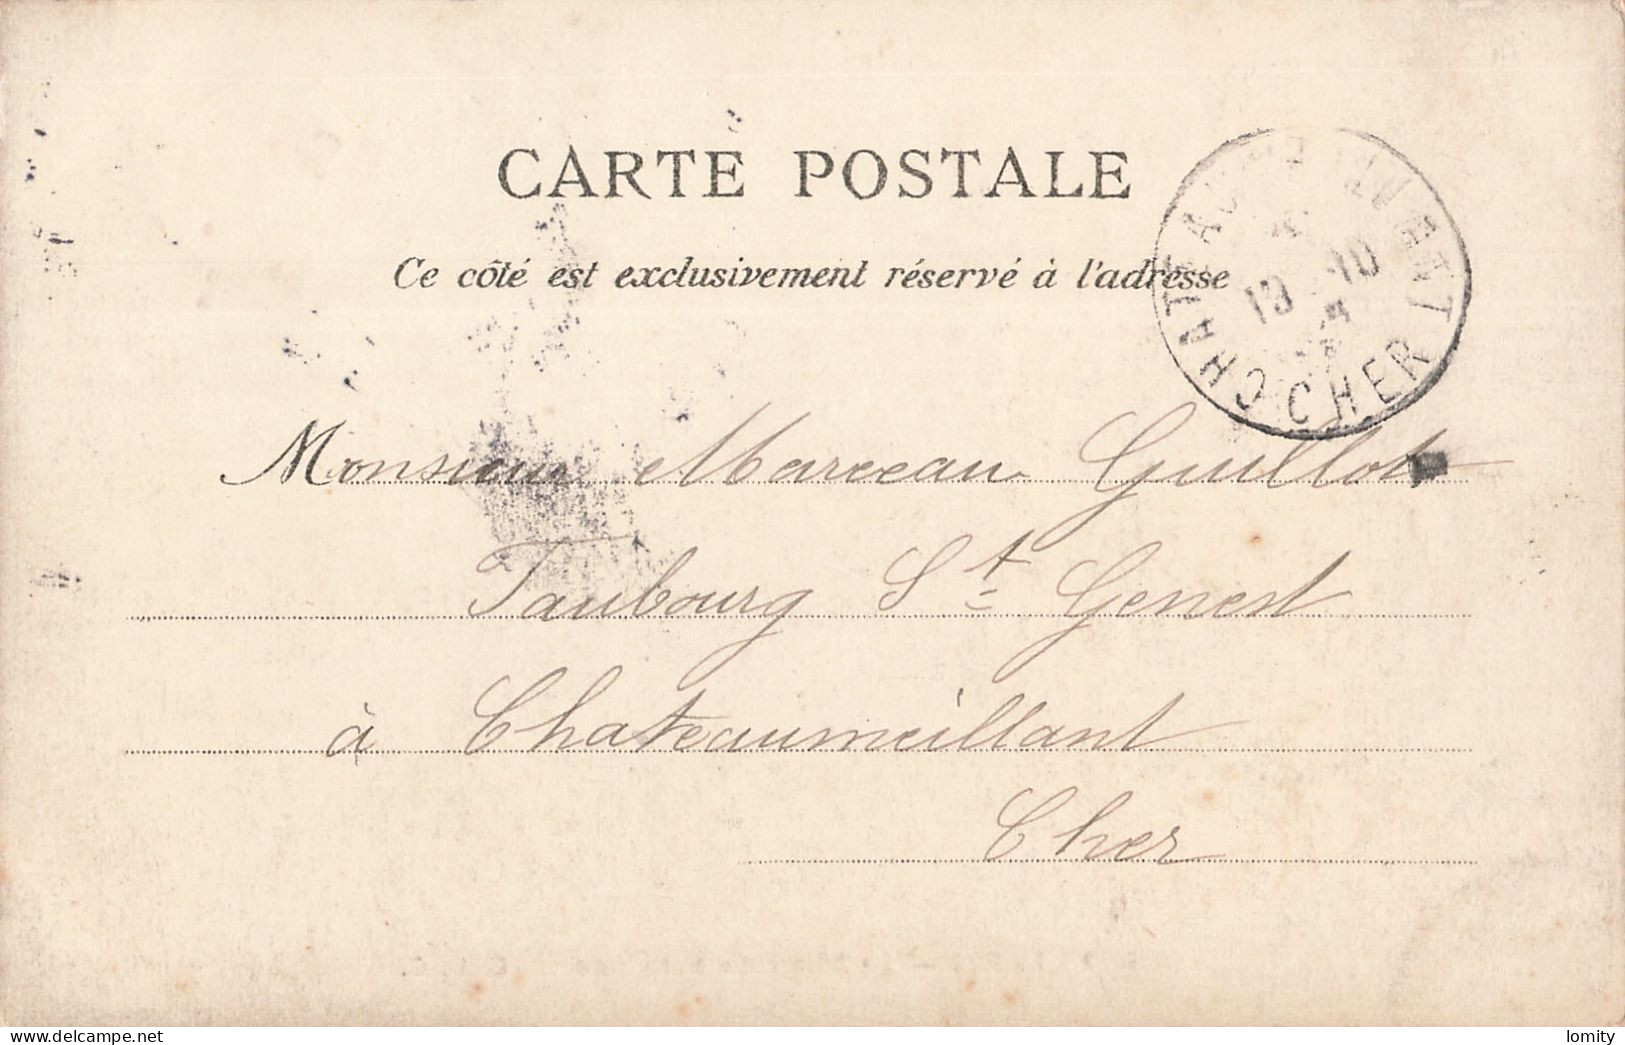 CARTE POSTALE
Ce côté est exclusivement réservé à l'adresse
CHATEAUMEILLANT
13 10
CHER
Monsieur Marceau Guillot
Faubourg St Genest
à Chateaumeillant
Cher
www.delcampe.net
lomity